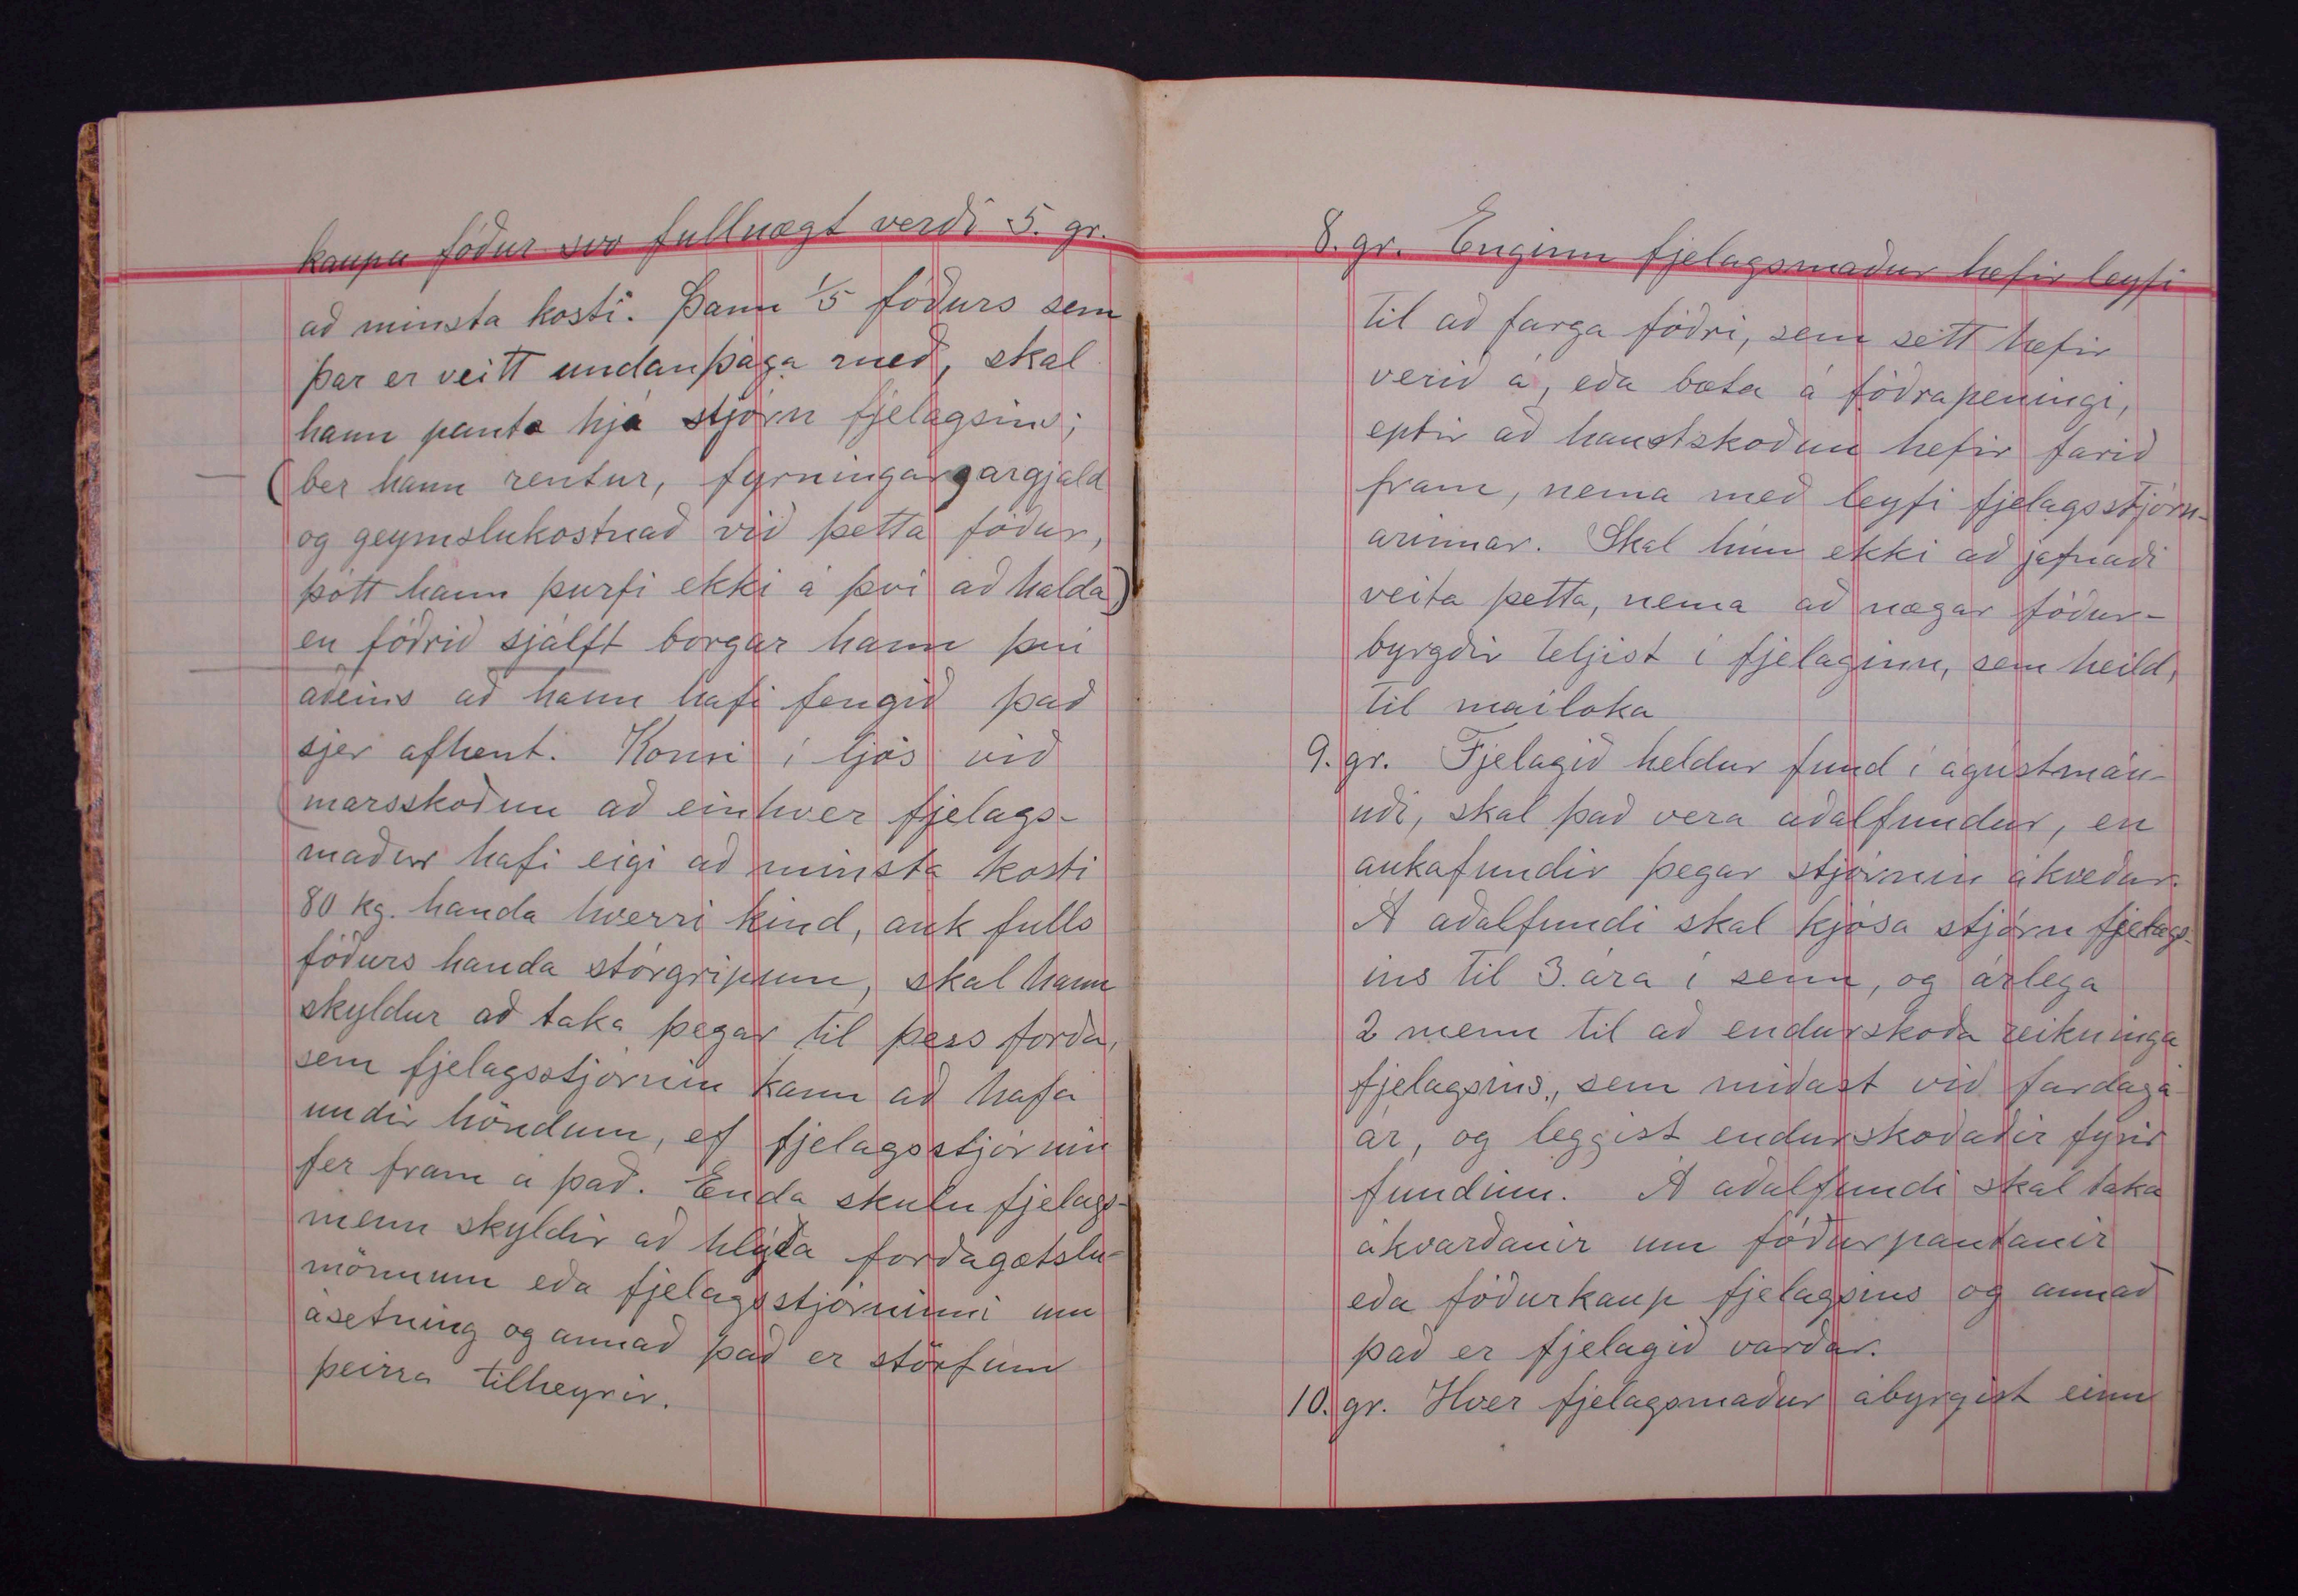 kaupa fóður svo fullnægt verði 5. gr.
að minsta kosti. Þann 1/5 fóðurs sem
þar er veitt undanþága með, skal
hann panta hjá stjórn fjelagsins;
(ber hann rentur, fyrningargargjald
og geymslukostnað við þetta fóður,
þótt hann þurfi ekki á því að halda)
en fóðrið sjálft borgar hann því
aðeins að hann hafi fengið það
sjer afhent. Komi í ljós við
(marsskoðun að einhver fjelags-
maður hafi eigi að minsta kosti
80 kg. handa hverri kind, auk fulls
fóðurs handa stórgripum, skal hann
skyldur að taka þegar til þess forða,
sem fjelagsstjórnin kann að hafa
undir höndum, ef fjelagsstjórnin
fer fram á það. Enda skulu fjelags-
menn skyldir að hlýða forðagætslu-
mönnum eða fjelagsstjórninni um
ásetning og annað það er störfum
þeirra tilheyrir.
8. gr. Enginn fjelagsmaður hefir leyfi
til að farga fóðri, sem sett hefir
verið á, eða bæta á fóðrapeningi,
eptir að haustskoðun hefir farið
fram, nema með leyfi fjelagsstjórn-
arinnar. Skal hún ekki að jafnaði
veita þetta, nema að nægar fóður-
byrgðir teljist í fjelaginu, sem heild,
til maíloka
9. gr. Fjelagið heldur fund í ágústmán-
uði, skal það vera aðalfundur, en
aukafundir þegar stjórnin ákveður.
Á aðalfundi skal kjósa stjórn fjelags-
ins til 3. ára í senn, og árlega
2 menn til að endurskoða reikninga
fjelagsins., sem miðast við fardaga-
ár, og leggist endurskoðaðir fyrir
fundinn. Á aðalfundi skal taka
ákvarðanir um fóðurpantanir
eða fóðurkaup fjelagsins og annað
það er fjelagið varðar.
10. gr. Hver fjelagsmaður ábyrgist einn